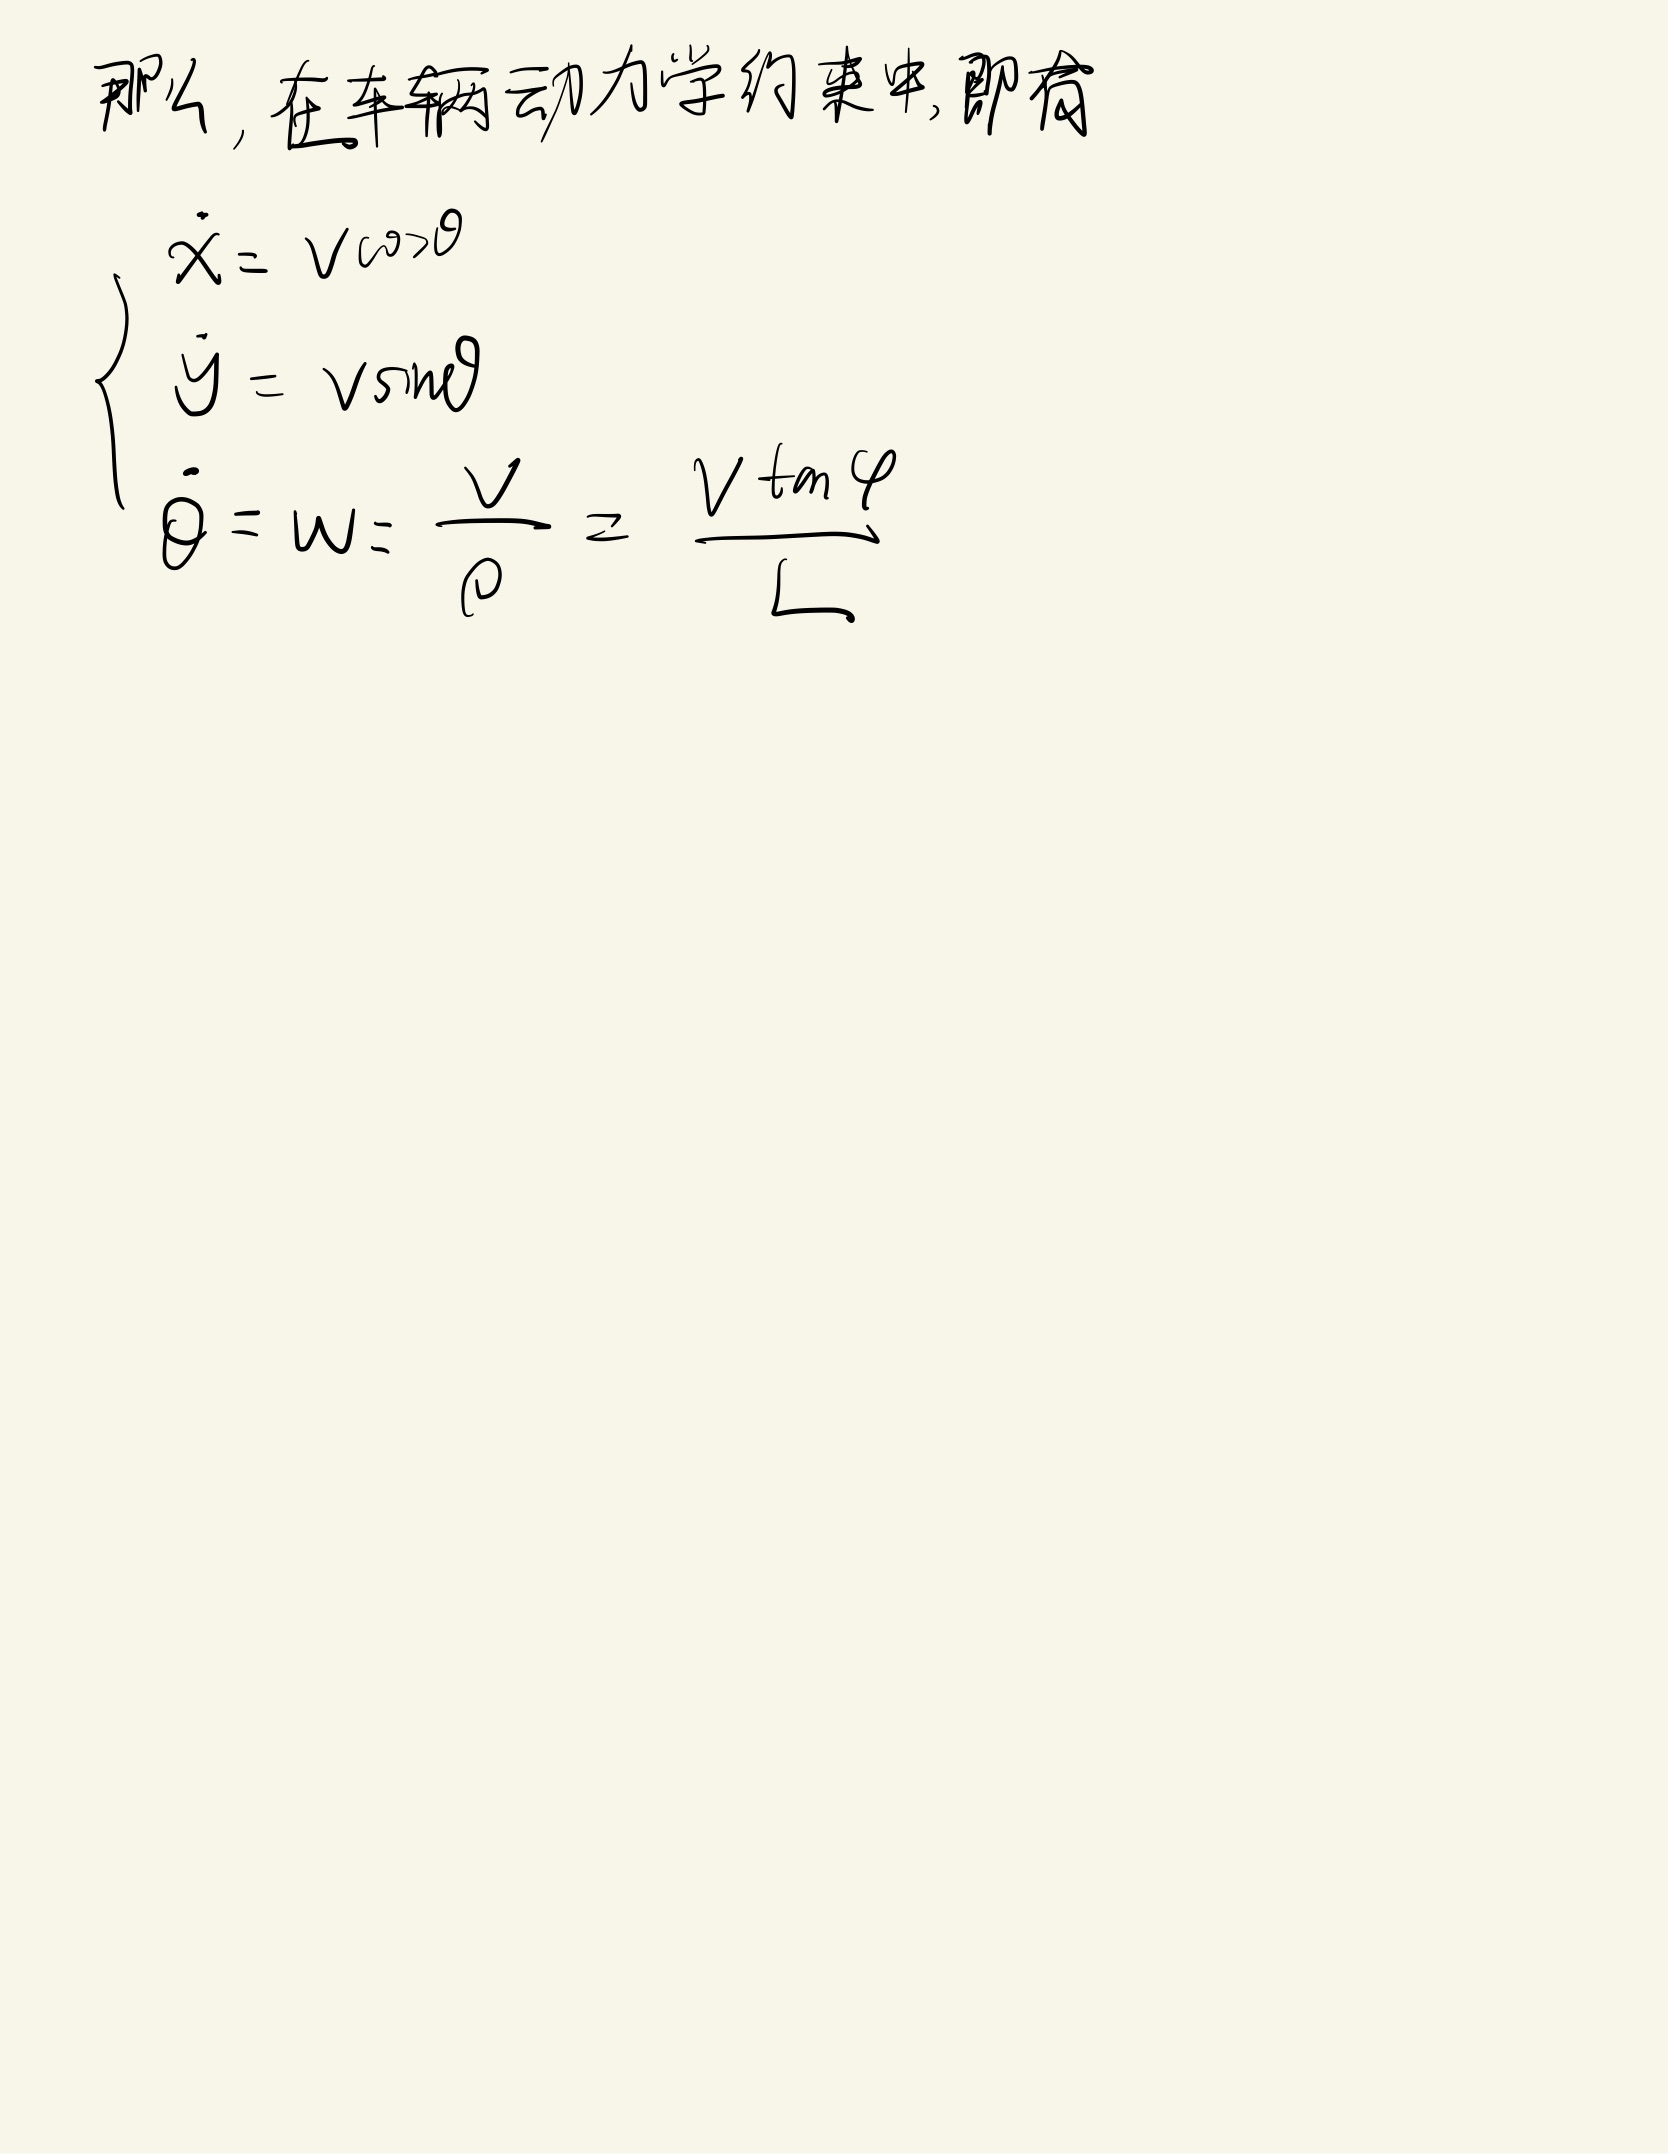 那么,在车辆动力学约束中,即有
ẋ = v cosθ
ẏ = v sinθ
θ̇ = w = v/ρ = v tanφ/L